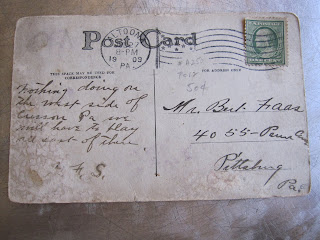 Post Card
ALTOONA
8-PM
1909
PA
THIS SPACE MAY BE USED FOR
CORRESPONDENCE
FOR ADDRESS ONLY
50¢
Nothing doing on
the west side of
Pa we
will have to play
east of there.
F. S.
Mr. Bert Haas
4055- Penn Ave
Pittsburg
Pa.